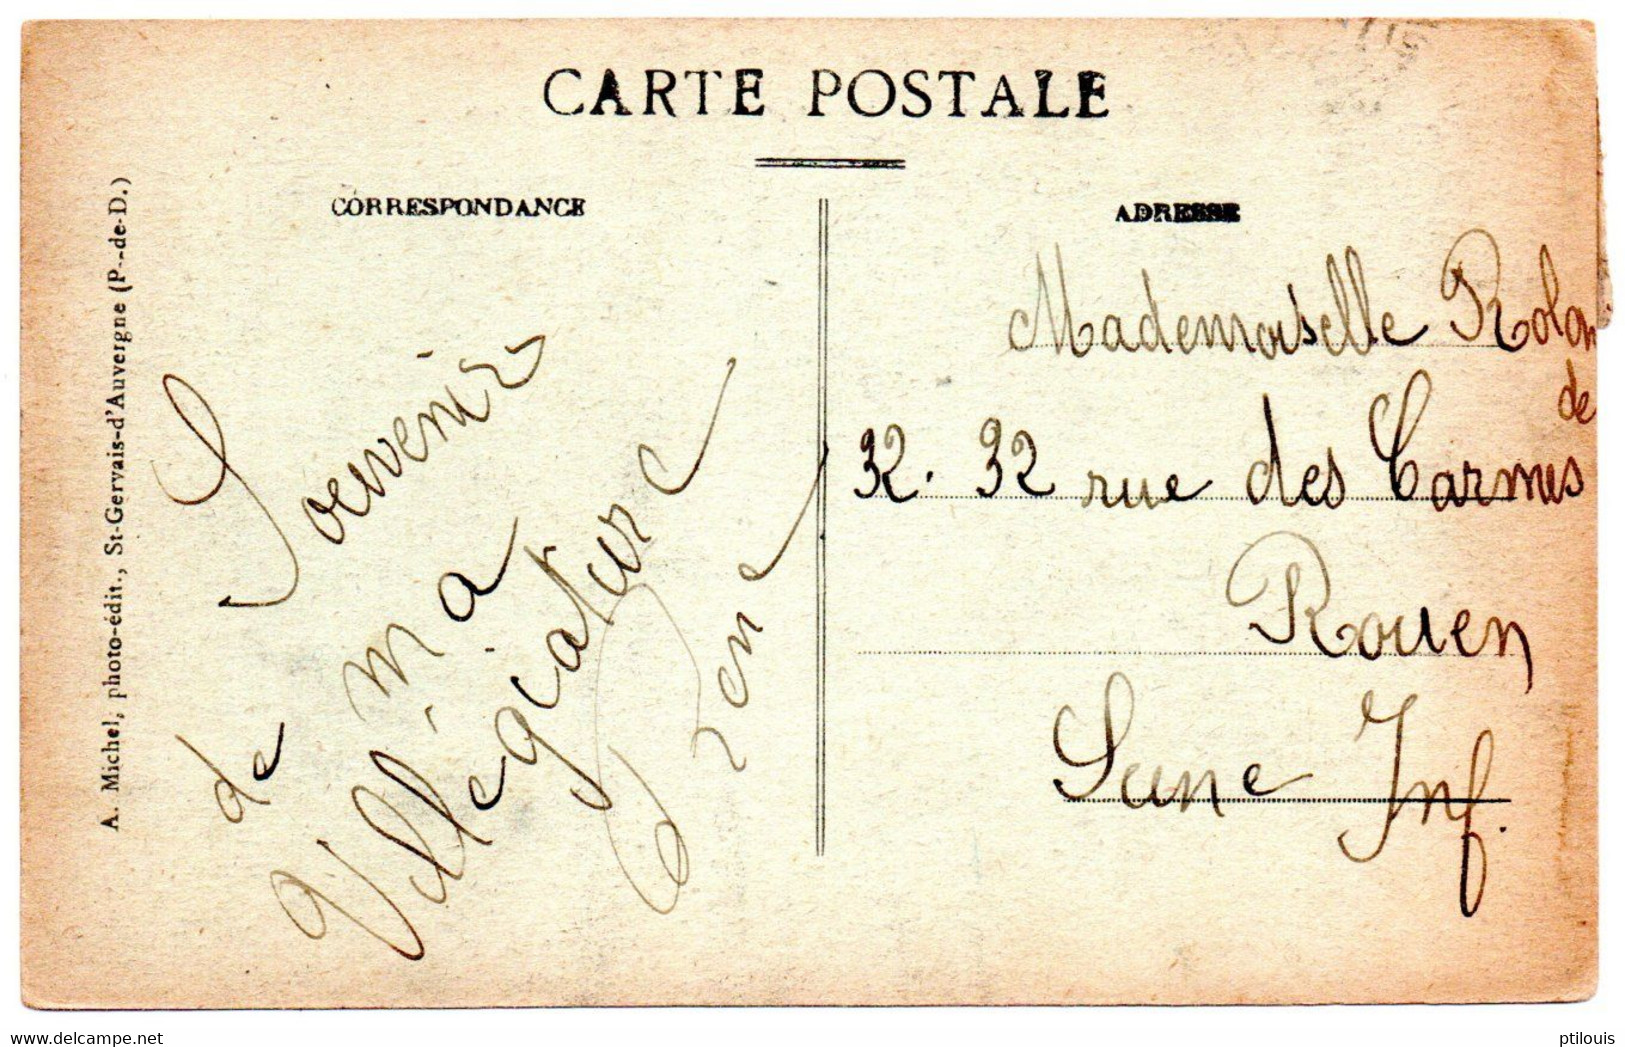 CARTE POSTALE
CORRESPONDANCE
ADRESSE
A. Michel, photo-édit., St-Gervais-d'Auvergne (P.-de-D.)
Souvenir
de ma
Villégiature
Mademoiselle Rolon
de
32. 32 rue des Carmes
Rouen
Seine Inf.
www.delcampe.net
ptilouis